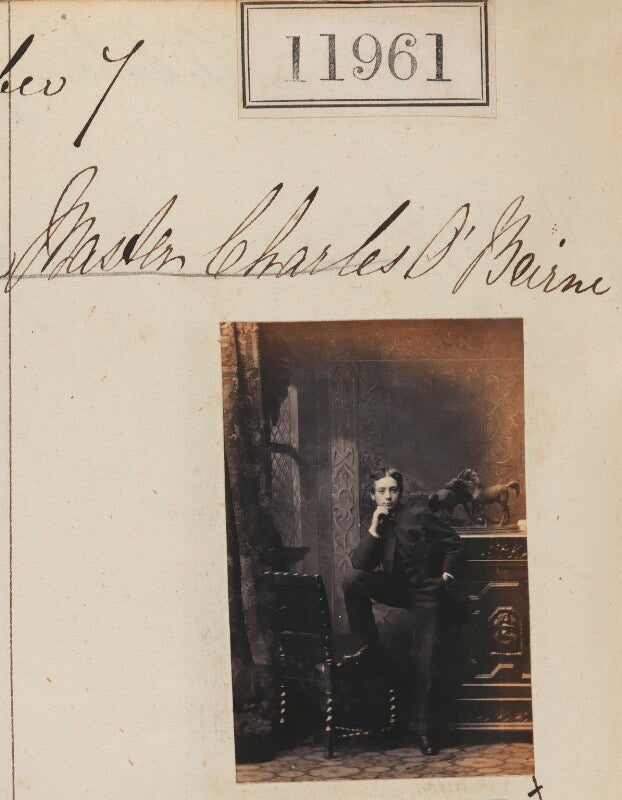 11961
7
Master Charles O'Beirne
x